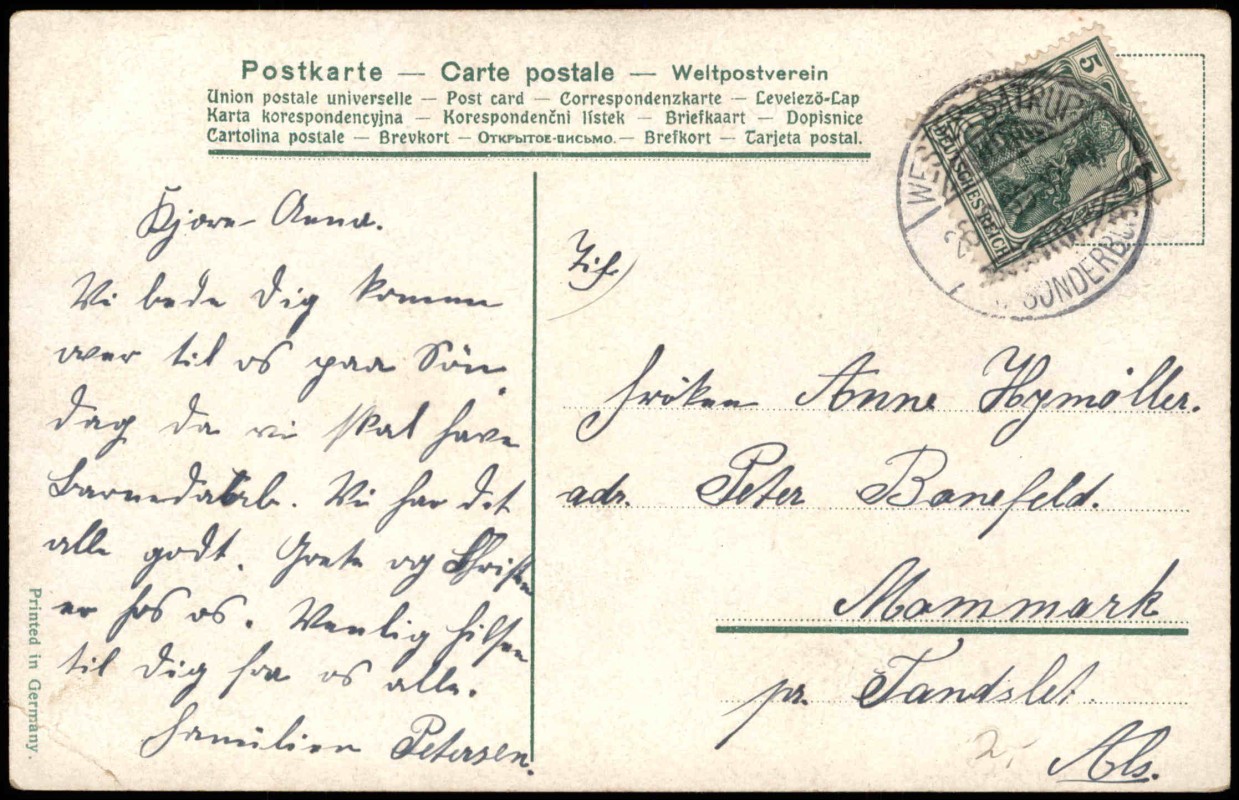 Postkarte — Carte postale — Weltpostverein
Union postale universelle — Post card — Correspondenzkarte — Levelező-Lap
Karta korespondencyjna — Korespondenční lístek — Briefkaart — Dopisnice
Cartolina postale — Brevkort — Открытое-письмо. — Brefkort — Tarjeta postal.
5
DEUTSCHES REICH
SATRUP
SONDERBURG
Kjære Anna.
Vi bede Dig komme
over til os paa Søn
dag da vi skal have
Barnedaab. Vi har det
alle godt. Grete og Christen
er hos os. Venlig Hilsen
til Dig fra os alle.
Familien Petersen.
Frøken Anne Hymøller.
adr. Peter Bonefeld.
Mommark
pr. Tandslet.
Als.
2,-
Printed in Germany.